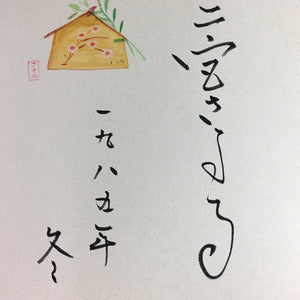 二宮さよ子
一九八五年
冬